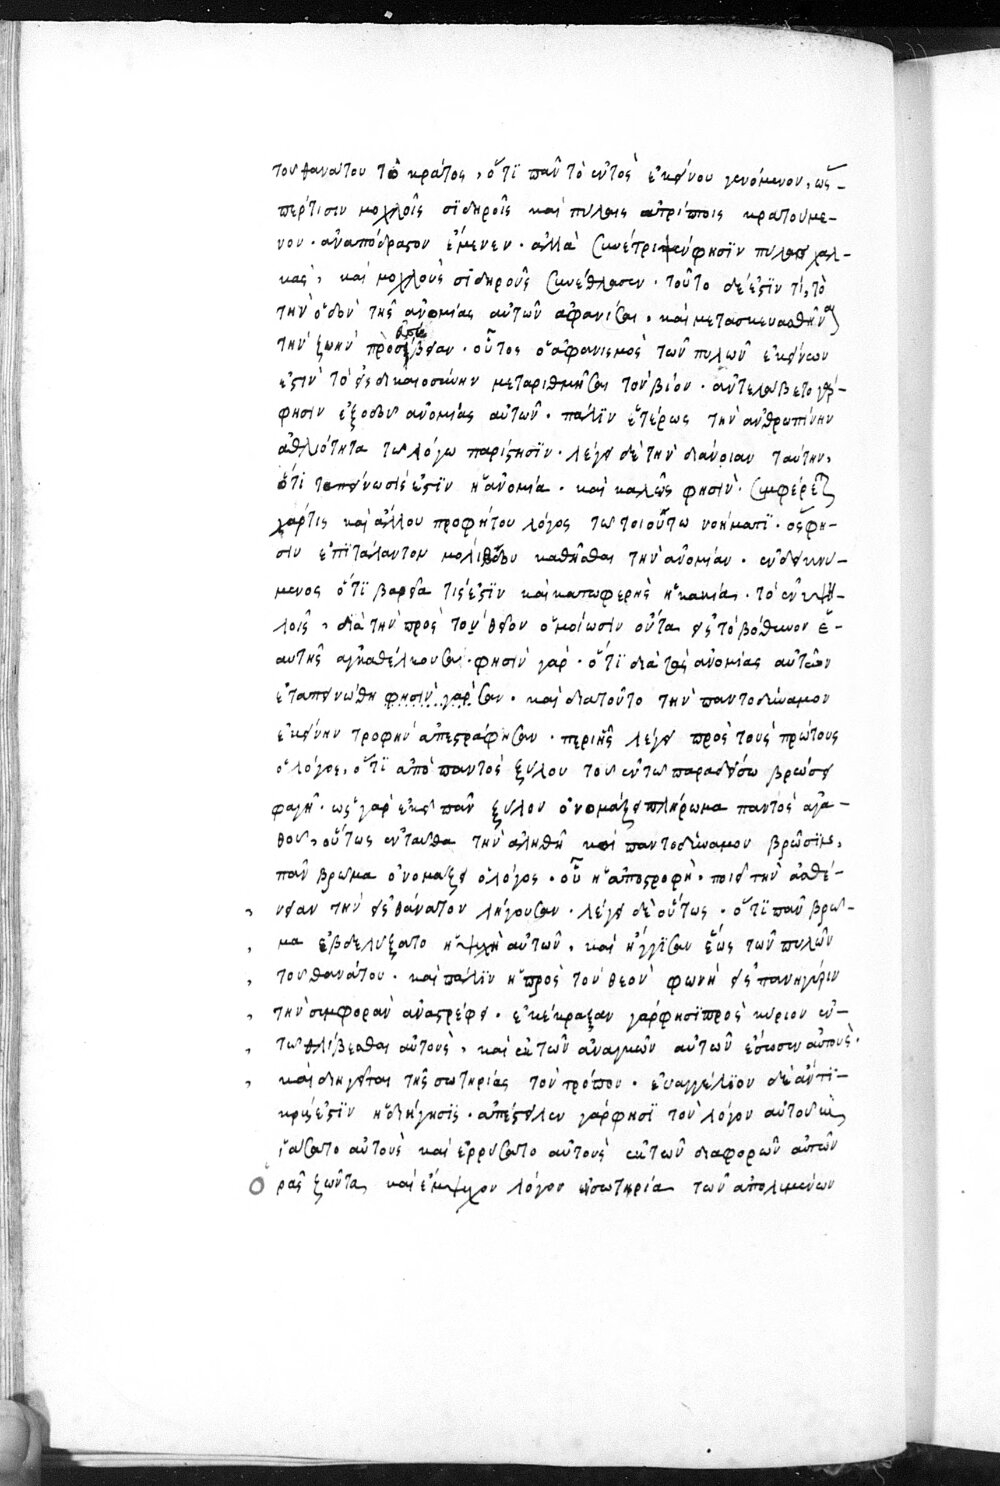 του θανάτου τὸ κράτος, ὅτι πᾶν τὸ ἐντὸς ἐκείνου γενόμενον, ὥς-
περ τισὶν μοχλοῖς σιδηροῖς καὶ πύλαις ἀτρίπτοις κρατούμε-
νον. ἀναπόδραστον ἔμενεν. ἀλλὰ συνέτριψεν φησὶν πύλας χαλ-
κᾶς, καὶ μοχλοὺς σιδηροῦς συνέθλασεν. τοῦτο δέ ἐστιν τί, τὸ
τὴν ὁδὸν τῆς ἀνομίας αὐτῶν ἀφανίσαι. καὶ μετασκευασθῆναι
τὴν ζωὴν πρὸς εὐσέβειαν. οὗτος ὁ ἀφανισμὸς τῶν πυλῶν ἐκείνων
ἐστὶν τὸ εἰς δικαιοσύνην μεταρυθμῆσαι τὸν βίον. ἀντελάβετο γάρ
φησιν ἐξ ὁδοῦ ἀνομίας αὐτῶν. πάλιν ἑτέρως τὴν ἀνθρωπίνην
ἀθλιότητα τῶ λόγω παρίστησιν. λέγει δὲ τὴν διάνοιαν ταύτην,
ὅτι ταπείνωσίς ἐστιν ἡ ἀνομία. καὶ καλῶς φησὶν. συμφέρεται
γάρ τις καὶ ἄλλου προφήτου λόγος τῶ τοιούτω νοήματι. ὅς φη-
σιν ἐπὶ τάλαντον μολίβδου καθῆσθαι τὴν ἀνομίαν. ἐνδεικνύ-
μενος ὅτι βαρεῖα τίς ἐστιν καὶ κατωφερὴς ἡ κακία. τὸ ἐν ὑψη-
λοῖς, διὰ τὴν πρὸς τὸν θεὸν ὁμοίωσιν ὄντα εἰς τὸ βάθυνον ἑ-
αυτῆς συγκαθέλκουσα. φησὶν γὰρ. ὅτι διὰ τὰς ἀνομίας αὐτῶν
ἐταπεινώθησαν. καὶ διὰ τοῦτο τὴν παντοδύναμον
ἐκείνην τροφὴν ἀπεστράφησαν. περὶ ἧς λέγει πρὸς τοὺς πρώτους
ὁ λόγος, ὅτι ἀπὸ παντὸς ξύλου τοῦ ἐν τῶ παραδείσω βρώσει
φαγῆ. ὡς γὰρ ἐκεῖ πᾶν ξύλον ὀνομάζει πλήρωμα παντὸς ἀγα-
θοῦ, οὕτως ἐνταῦθα τὴν ἀληθῆ καὶ παντοδύναμον βρῶσιν,
πᾶν βρῶμα ὀνομάζει ὁ λόγος. οὗ ἡ ἀποστροφὴ. ποιεῖ τὴν ἀσθέ-
νειαν τὴν εἰς θάνατον λήγουσαν. λέγει δὲ οὕτως. ὅτι πᾶν βρῶ-
μα ἐβδελύξατο ἡ ψυχὴ αὐτῶν, καὶ ἤγγισαν ἕως τῶν πυλῶν
τοῦ θανάτου. καὶ πάλιν ἡ πρὸς τὸν θεὸν φωνὴ εἰς πανήγυριν
τὴν συμφορὰν ἀναστρέφει. ἐκέκραξαν γάρ φησι πρὸς κύριον ἐν
τῶ θλίβεσθαι αὐτοὺς, καὶ ἐκ τῶν ἀναγκῶν αὐτῶν ἔσωσεν αὐτοὺς.
καὶ διηγεῖται τῆς σωτηρίας τὸν τρόπον. εὐαγγέλιον δὲ ἄντι-
κρύς ἐστιν ἡ διήγησις. ἀπέστειλεν γάρ φησι τὸν λόγον αὐτοῦ καὶ
ἰάσατο αὐτοὺς καὶ ἐρρύσατο αὐτοὺς ἐκ τῶν διαφθορῶν αὐτῶν
ὁρᾶς ζῶντα, καὶ ἔμψυχον λόγον ἐν σωτηρία τῶν ἀπολλυμένων